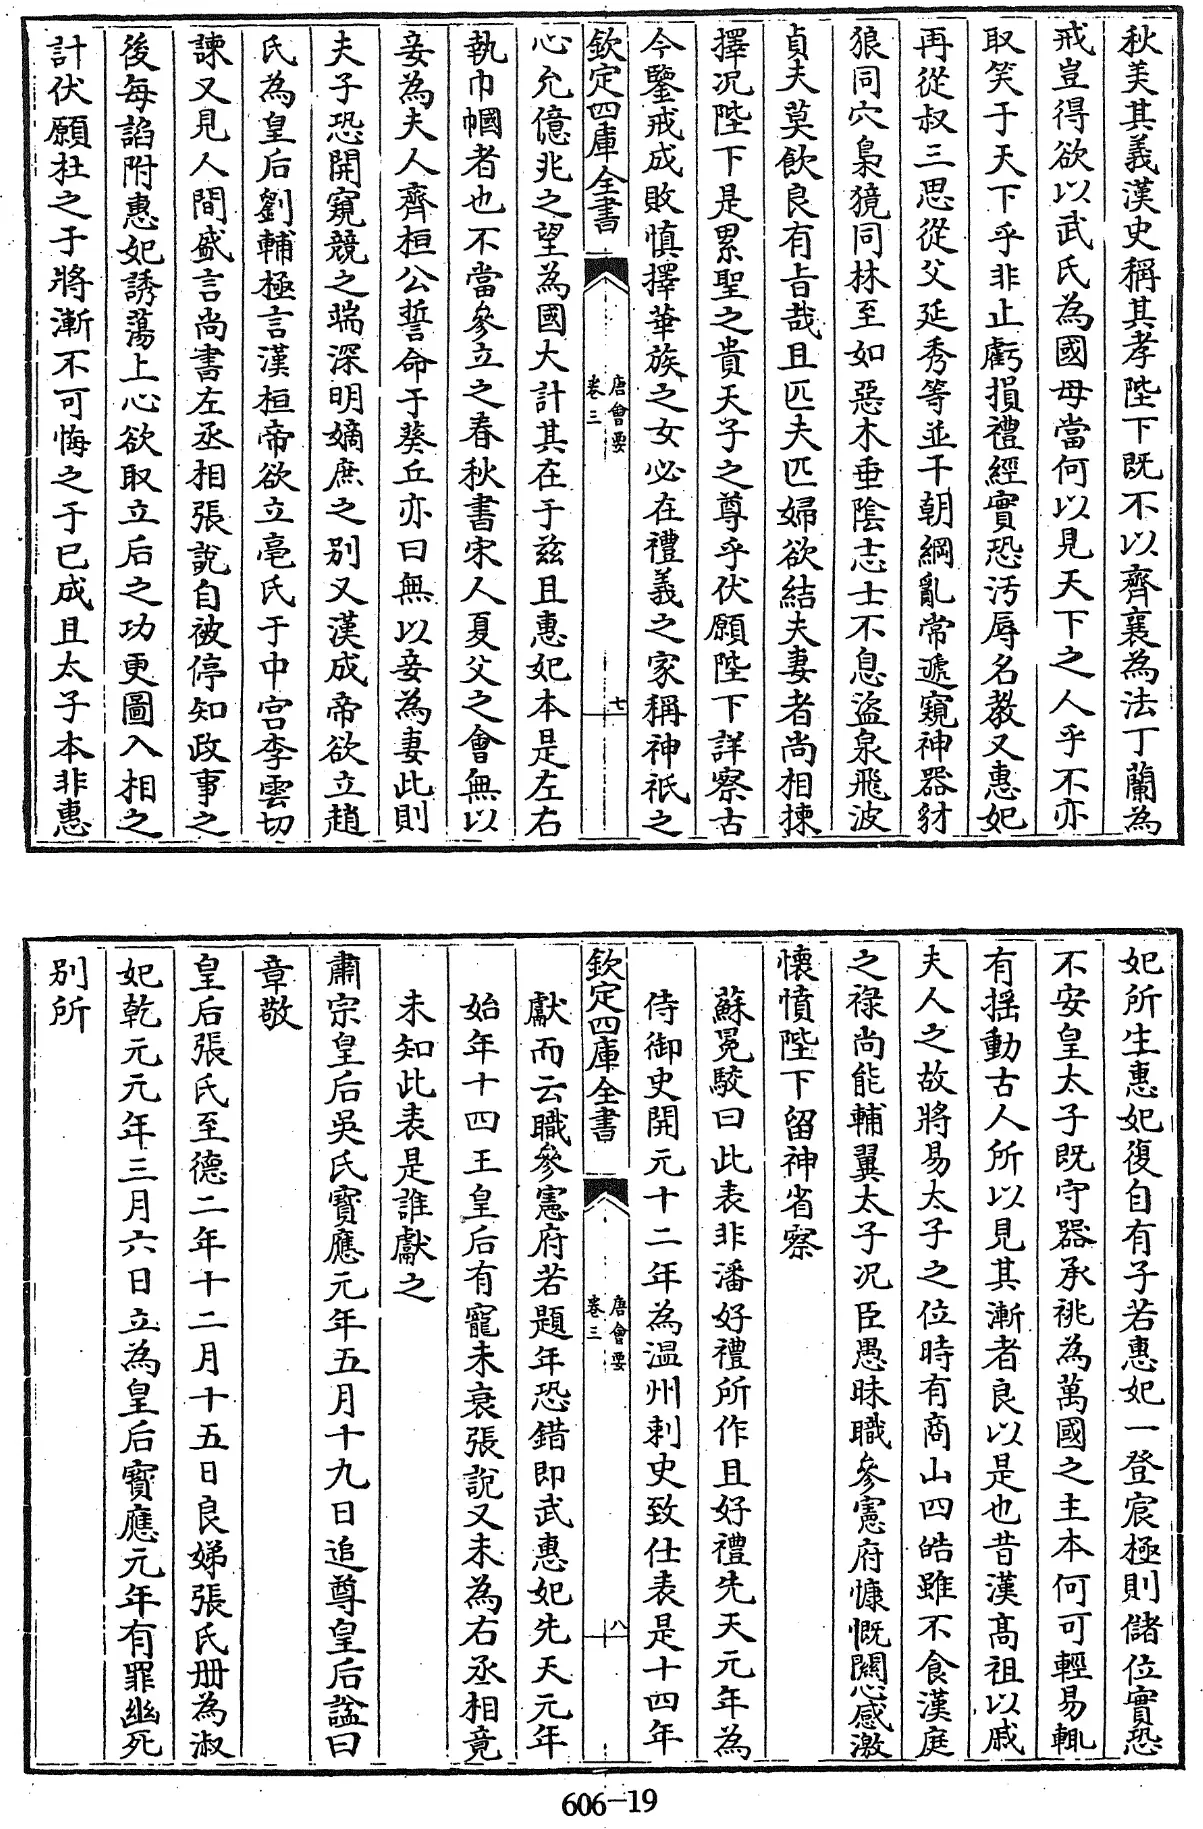 秋美其義漢史稱其孝陛下既不以齊襄為法丁蘭為
戒豈得欲以武氏為國母當何以見天下之人乎不亦
取笑于天下乎非止虧損禮經實恐汚辱名教又惠妃
再從叔三思從父延秀等並干朝綱亂常遞窺神器豺
狼同穴梟獍同林至如惡木垂陰志士不息盜泉飛波
貞夫莫飲良有旨哉且匹夫匹婦欲結夫妻者尚相揀
擇况陛下是累聖之貴天子之尊乎伏願陛下詳察古
今鑒戒成敗慎擇華族之女必在禮義之家稱神祇之
欽定四庫全書
唐會要
卷三
七
心允億兆之望為國大計其在于兹且惠妃本是左右
執巾幗者也不當參立之春秋書宋人夏父之會無以
妾為夫人齊桓公誓命于葵丘亦曰無以妾為妻此則
夫子恐開窺競之端深明嫡庶之别又漢成帝欲立趙
氏為皇后劉輔極言漢桓帝欲立亳氏于中宫李雲切
諫又見人間盛言尚書左丞相張說自被停知政事之
後每諂附惠妃誘蕩上心欲取立后之功更圖入相之
計伏願杜之于將漸不可悔之于已成且太子本非惠
妃所生惠妃復自有子若惠妃一登宸極則儲位實恐
不安皇太子既守器承祧為萬國之主本何可輕易輒
有揺動古人所以見其漸者良以是也昔漢髙祖以戚
夫人之故將易太子之位時有商山四皓雖不食漢庭
之禄尚能輔翼太子况臣愚昧職參憲府慷慨關心感激
懐憤陛下留神省察
蘇冕駮曰此表非潘好禮所作且好禮先天元年為
侍御史開元十二年為温州刺史致仕表是十四年
欽定四庫全書
唐會要
卷三
八
獻而云職參憲府若題年恐錯即武惠妃先天元年
始年十四王皇后有寵未衰張說又未為右丞相竟
未知此表是誰獻之
肅宗皇后吳氏寶應元年五月十九日追尊皇后諡曰
章敬
皇后張氏至德二年十二月十五日良娣張氏册為淑
妃乾元元年三月六日立為皇后寶應元年有罪幽死
别所
606-19